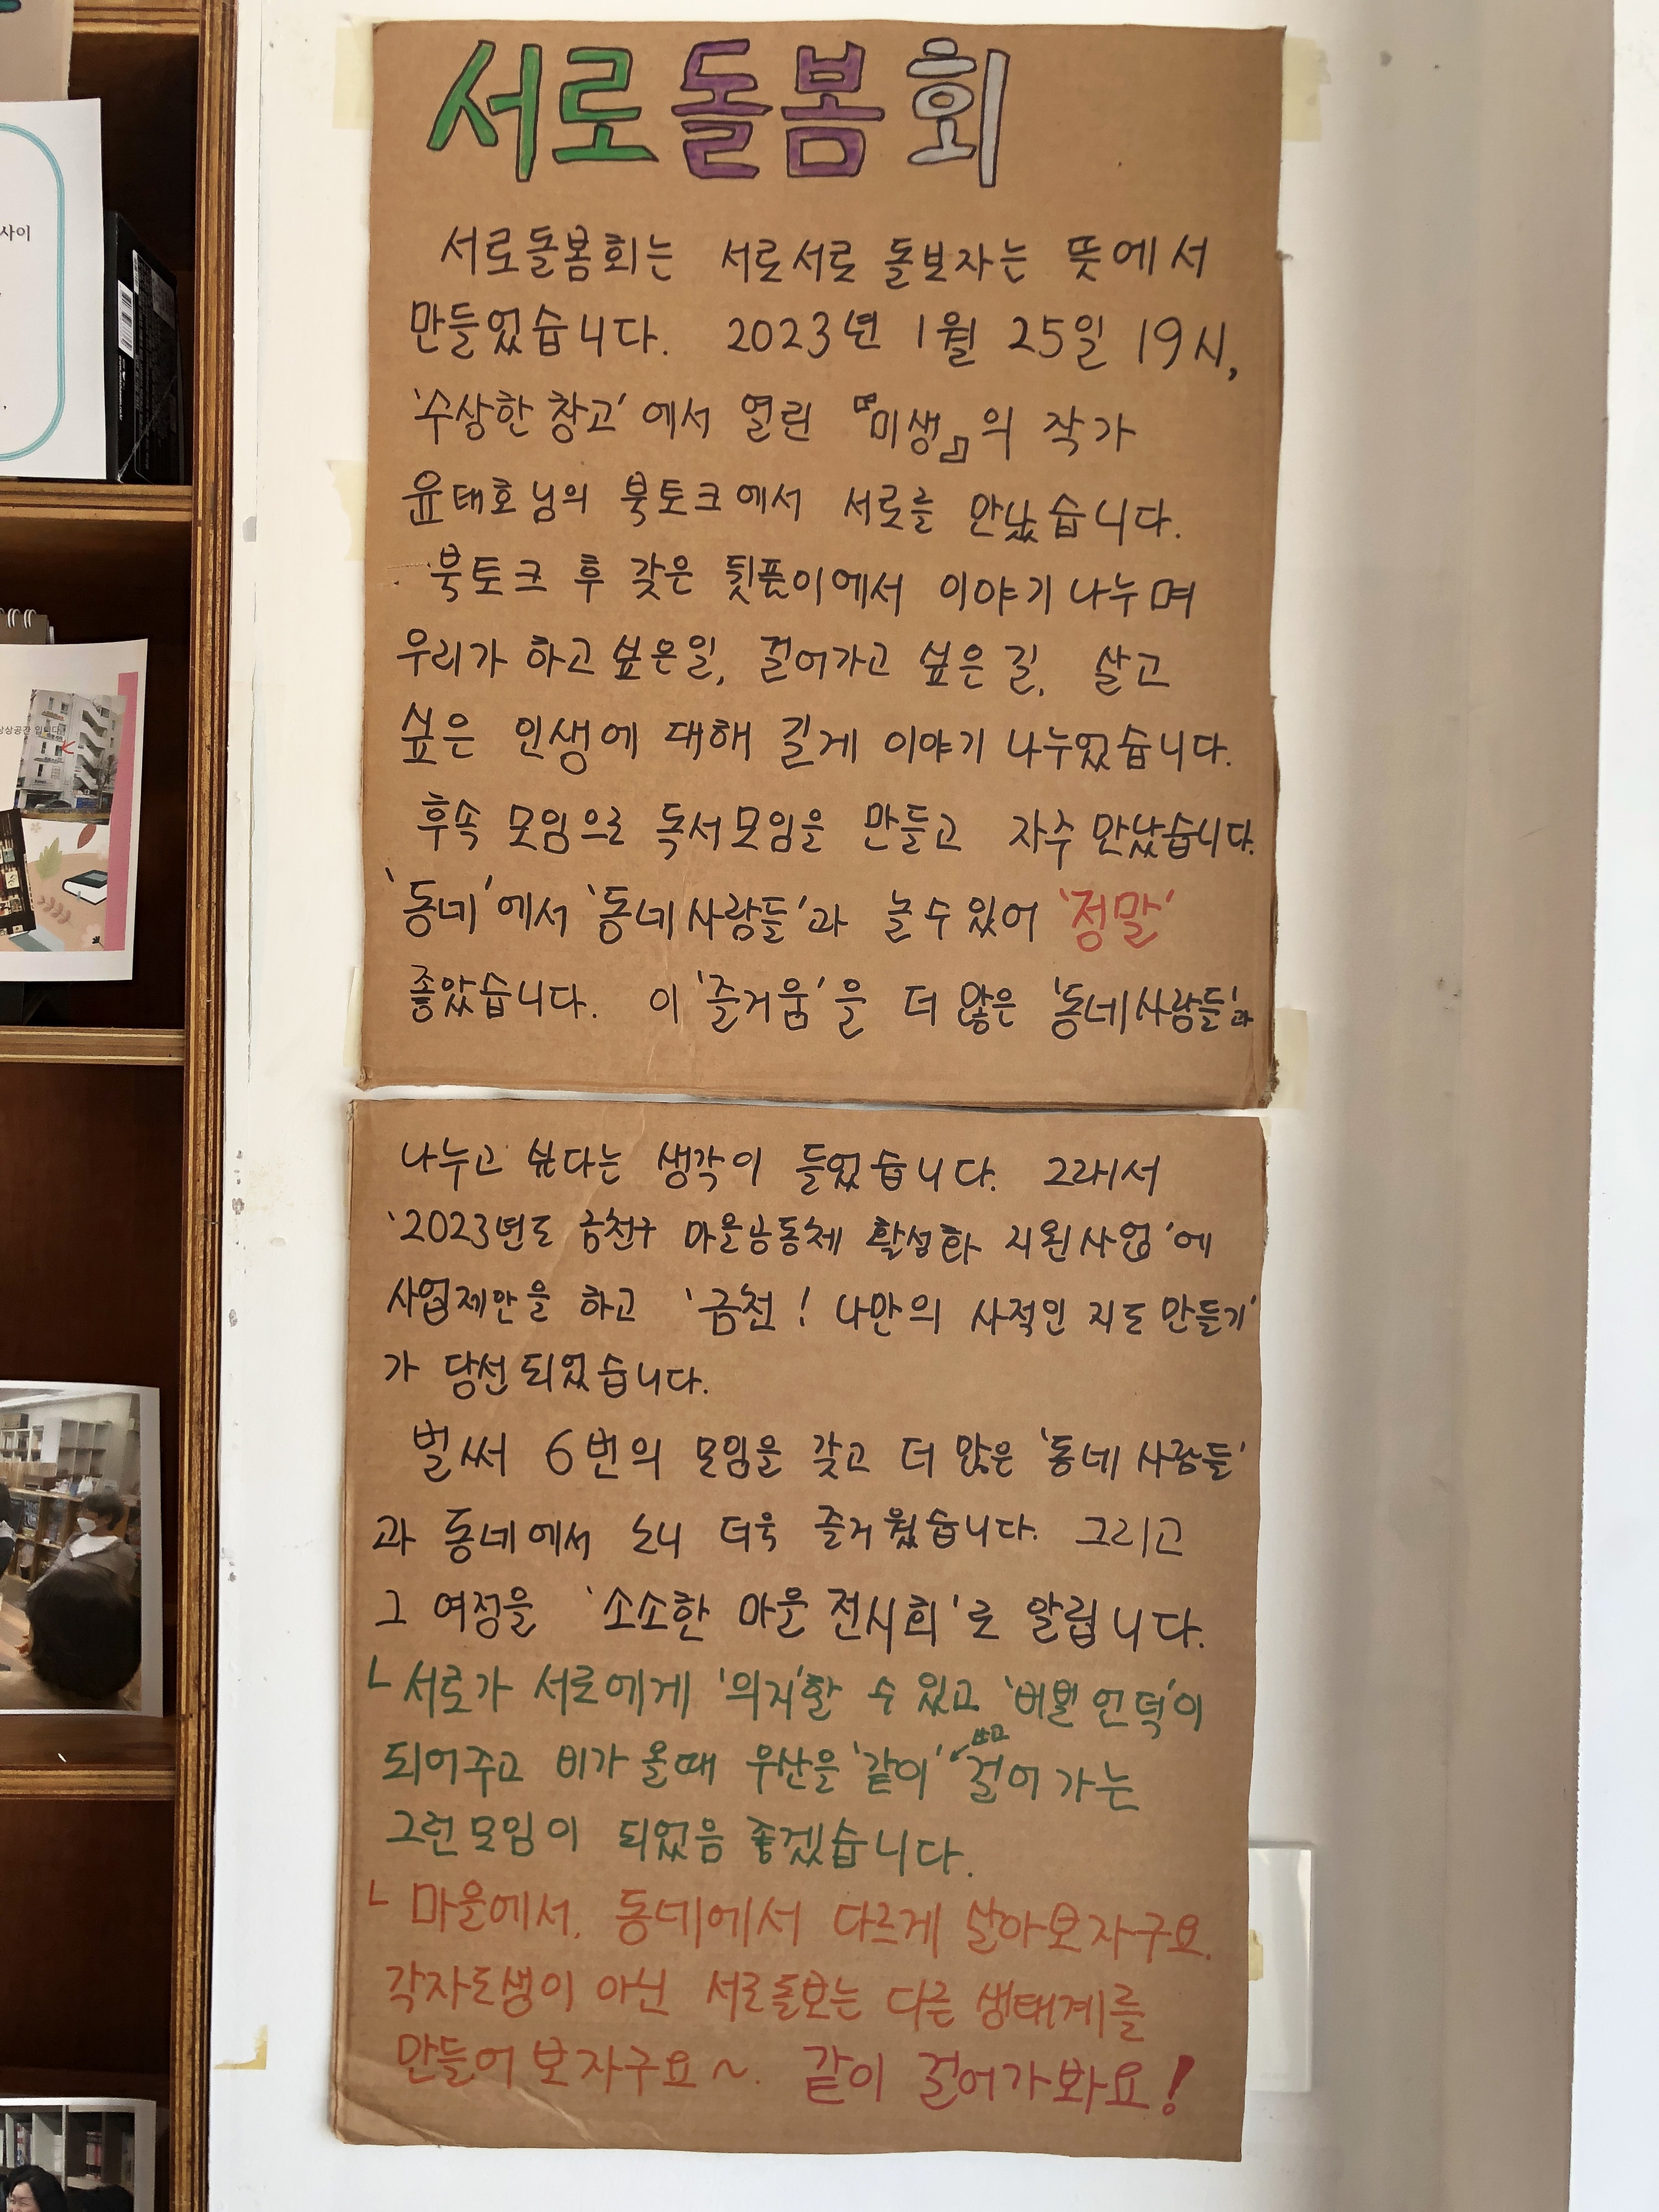 서로돌봄회
서로돌봄회는 서로서로 돌보자는 뜻에서
만들었습니다. 2023년 1월 25일 19시,
'수상한 창고'에서 열린 『미생』의 작가
윤태호님의 북토크에서 서로를 만났습니다.
북토크 후 갖은 뒷풀이에서 이야기 나누며
우리가 하고 싶은일, 걸어가고 싶은 길, 살고
싶은 인생에 대해 길게 이야기 나누었습니다.
후속 모임으로 독서모임을 만들고 자주 만났습니다.
'동네'에서 '동네사람들'과 놀 수 있어 '정말'
좋았습니다. 이 '즐거움'을 더 많은 '동네사람들'과
나누고 싶다는 생각이 들었습니다. 그래서
'2023년도 금천구 마을공동체 활성화 지원사업'에
사업제안을 하고 '금천! 나만의 사적인 지도 만들기'
가 당선되었습니다.
벌써 6번의 모임을 갖고 더 많은 '동네 사람들'
과 동네에서 노니 더욱 즐거웠습니다. 그리고
그 여정을 '소소한 마을 전시회'로 알립니다.
ㄴ서로가 서로에게 '의지'할 수 있고 '비빌 언덕'이
되어주고 비가 올때 우산을 '같이' 쓰고 걸어가는
그런모임이 되었음 좋겠습니다.
ㄴ마을에서, 동네에서 다르게 살아보자구요.
각자도생이 아닌 서로돌보는 다른 생태계를
만들어 보자구요~. 같이 걸어가봐요!
사이
상상공간 입니다!